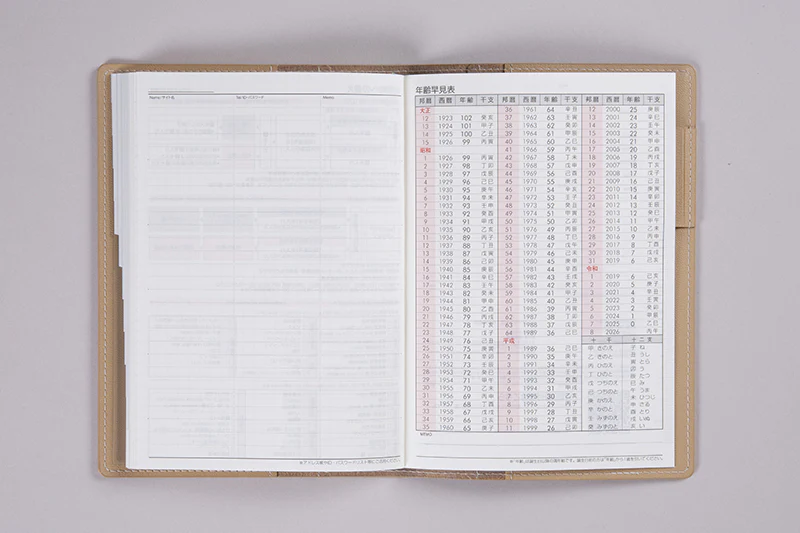 Name/サイト名 Tel,ID・パスワード Memo
※アドレス帳やID・パスワードリスト等にご活用ください。
年齢早見表
邦暦 西暦 年齢 干支
大正
12 1923 102 癸亥
13 1924 101 甲子
14 1925 100 乙丑
15 1926 99 丙寅
昭和
1 1926 99 丙寅
2 1927 98 丁卯
3 1928 97 戊辰
4 1929 96 己巳
5 1930 95 庚午
6 1931 94 辛未
7 1932 93 壬申
8 1933 92 癸酉
9 1934 91 甲戌
10 1935 90 乙亥
11 1936 89 丙子
12 1937 88 丁丑
13 1938 87 戊寅
14 1939 86 己卯
15 1940 85 庚辰
16 1941 84 辛巳
17 1942 83 壬午
18 1943 82 癸未
19 1944 81 甲申
20 1945 80 乙酉
21 1946 79 丙戌
22 1947 78 丁亥
23 1948 77 戊子
24 1949 76 己丑
25 1950 75 庚寅
26 1951 74 辛卯
27 1952 73 壬辰
28 1953 72 癸巳
29 1954 71 甲午
30 1955 70 乙未
31 1956 69 丙申
32 1957 68 丁酉
33 1958 67 戊戌
34 1959 66 己亥
35 1960 65 庚子
邦暦 西暦 年齢 干支
36 1961 64 辛丑
37 1962 63 壬寅
38 1963 62 癸卯
39 1964 61 甲辰
40 1965 60 乙巳
41 1966 59 丙午
42 1967 58 丁未
43 1968 57 戊申
44 1969 56 己酉
45 1970 55 庚戌
46 1971 54 辛亥
47 1972 53 壬子
48 1973 52 癸丑
49 1974 51 甲寅
50 1975 50 乙卯
51 1976 49 丙辰
52 1977 48 丁巳
53 1978 47 戊午
54 1979 46 己未
55 1980 45 庚申
56 1981 44 辛酉
57 1982 43 壬戌
58 1983 42 癸亥
59 1984 41 甲子
60 1985 40 乙丑
61 1986 39 丙寅
62 1987 38 丁卯
63 1988 37 戊辰
64 1989 36 己巳
平成
1 1989 36 己巳
2 1990 35 庚午
3 1991 34 辛未
4 1992 33 壬申
5 1993 32 癸酉
6 1994 31 甲戌
7 1995 30 乙亥
8 1996 29 丙子
9 1997 28 丁丑
10 1998 27 戊寅
11 1999 26 己卯
邦暦 西暦 年齢 干支
12 2000 25 庚辰
13 2001 24 辛巳
14 2002 23 壬午
15 2003 22 癸未
16 2004 21 甲申
17 2005 20 乙酉
18 2006 19 丙戌
19 2007 18 丁亥
20 2008 17 戊子
21 2009 16 己丑
22 2010 15 庚寅
23 2011 14 辛卯
24 2012 13 壬辰
25 2013 12 癸巳
26 2014 11 甲午
27 2015 10 乙未
28 2016 9 丙申
29 2017 8 丁酉
30 2018 7 戊戌
31 2019 6 己亥
令和
1 2019 6 己亥
2 2020 5 庚子
3 2021 4 辛丑
4 2022 3 壬寅
5 2023 2 癸卯
6 2024 1 甲辰
7 2025 0 乙巳
8 2026 丙午
十干 十二支
甲 きのえ 子 ね
乙 きのと 丑 うし
丙 ひのえ 寅 とら
丁 ひのと 卯 う
戊 つちのえ 辰 たつ
己 つちのと 巳 み
庚 かのえ 午 うま
辛 かのと 未 ひつじ
壬 みずのえ 申 さる
癸 みずのと 酉 とり
戌 いぬ
亥 い
MEMO
※「年齢」は誕生日以降の満年齢です。誕生日前の方は「年齢」から1歳を引いてください。